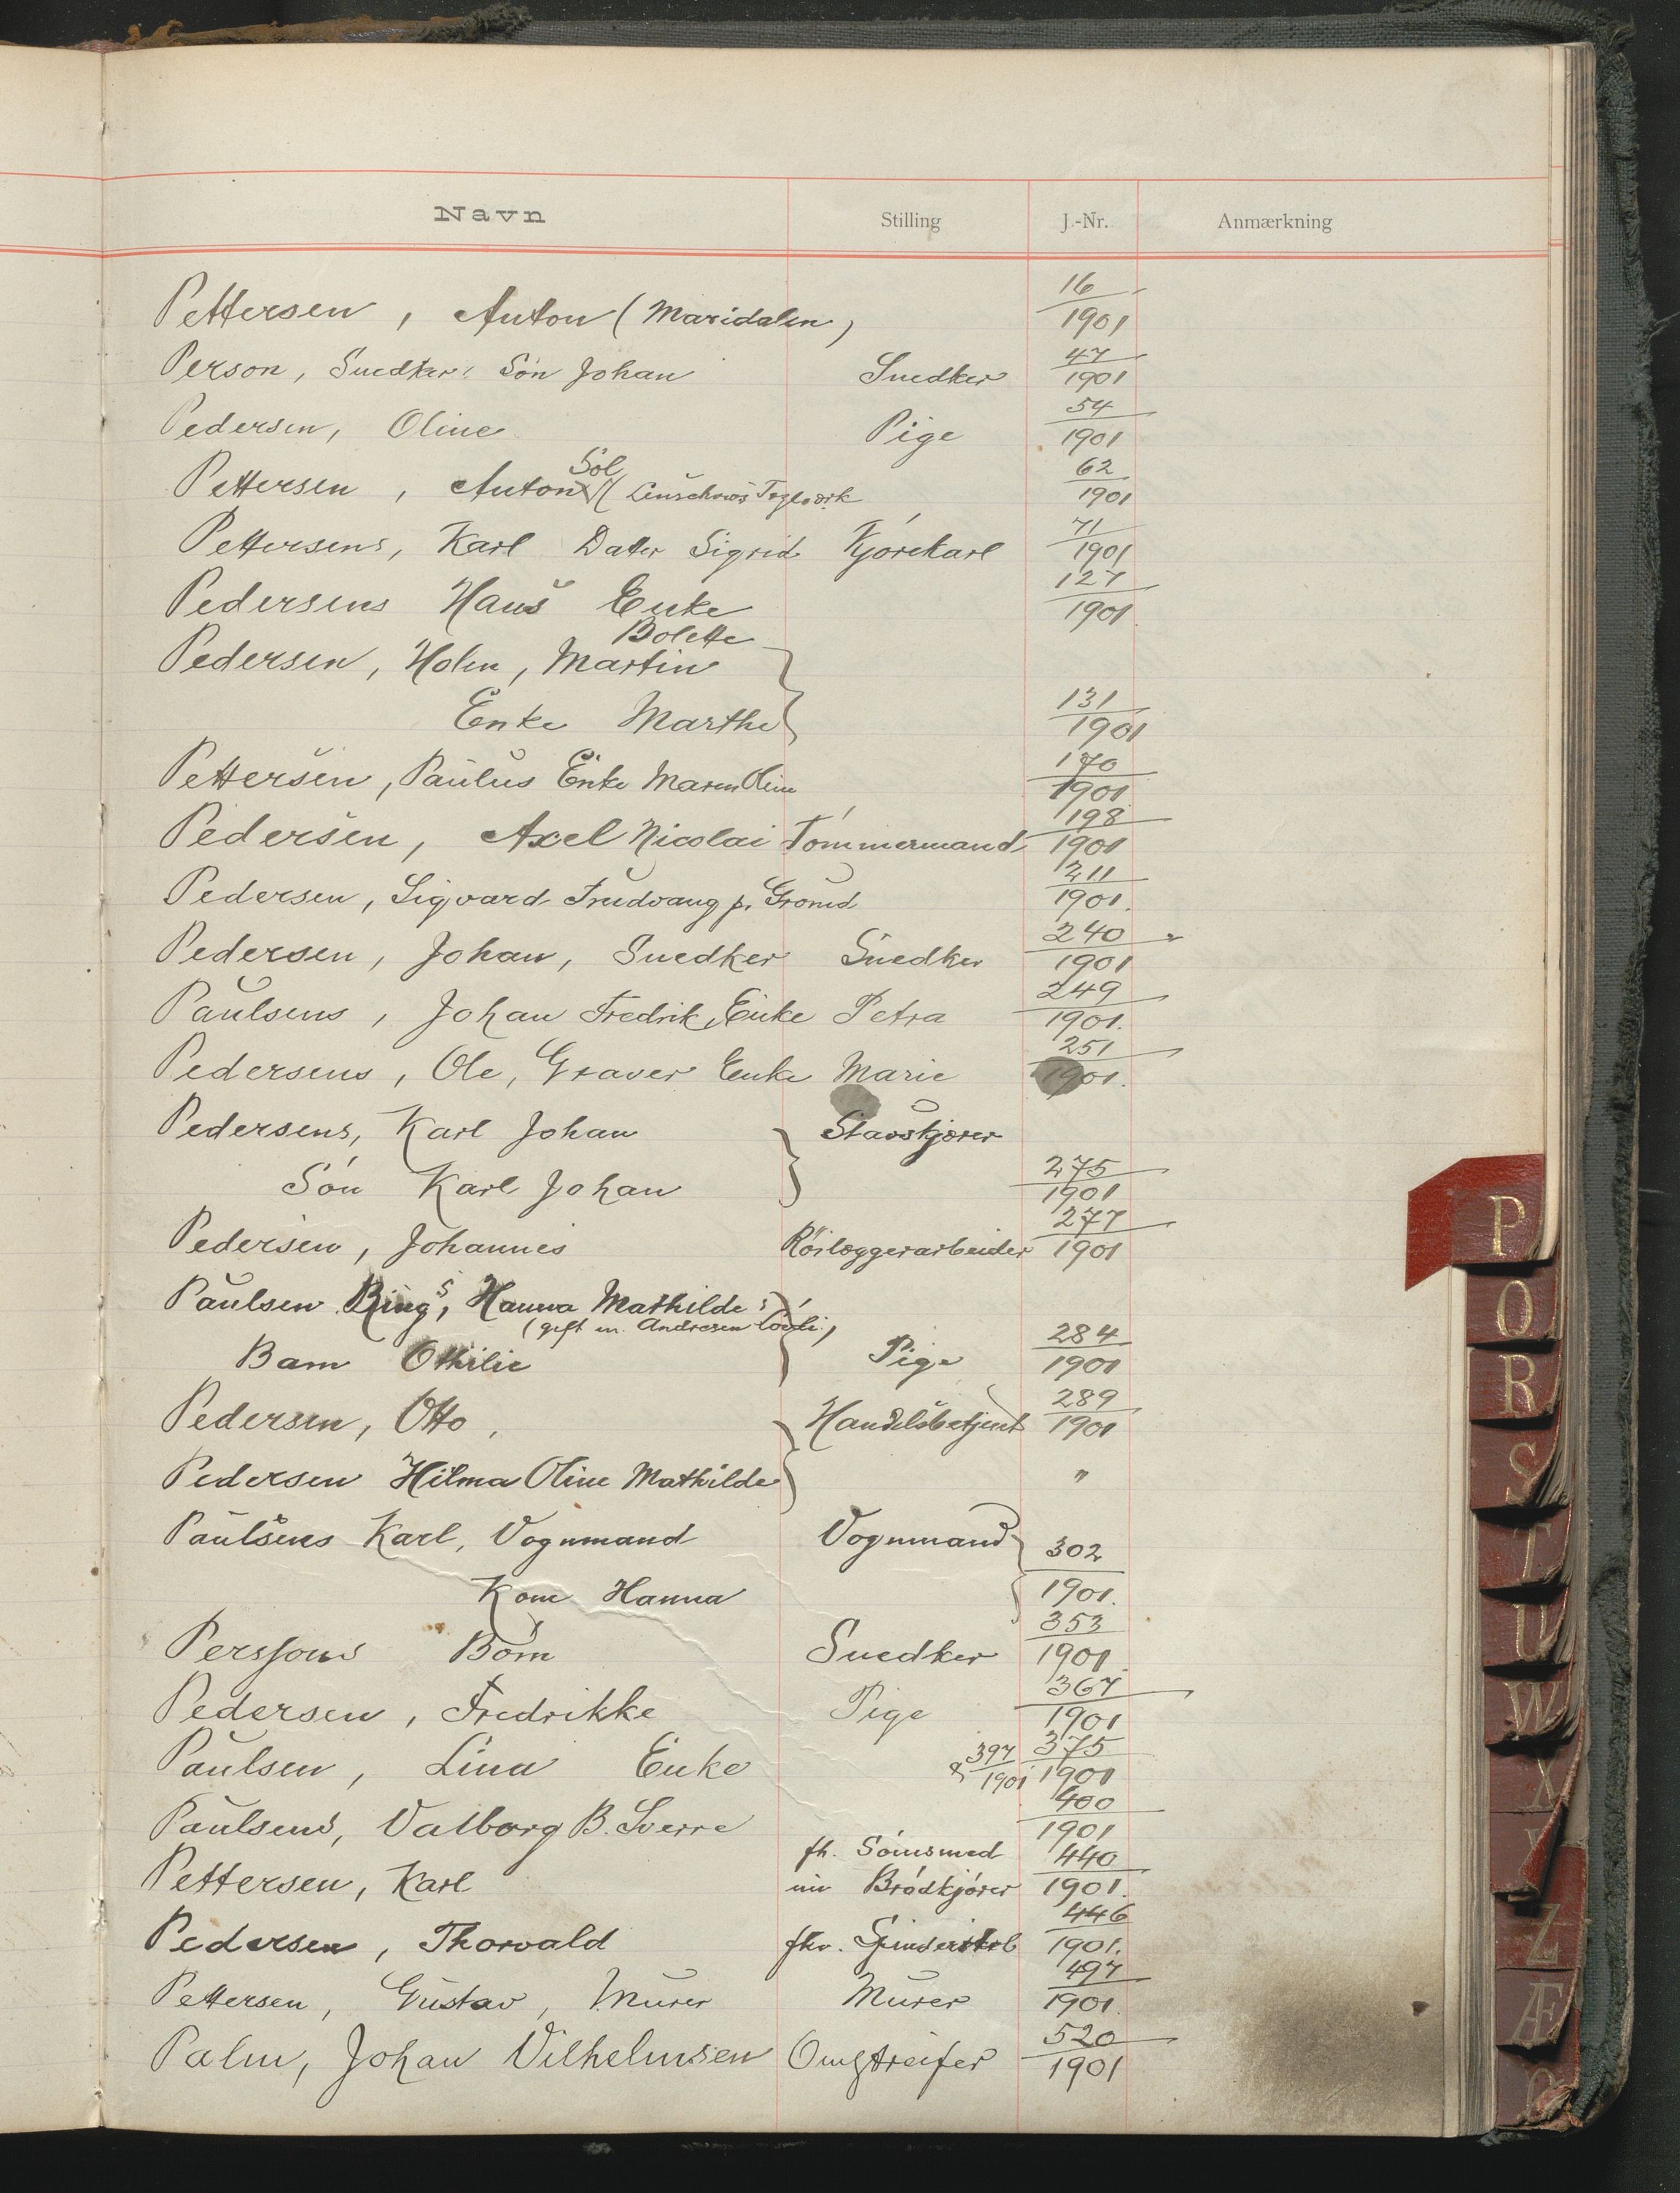 Navn Stilling J.-Nr. Anmærkning
Pettersen, Anton (Maridalen) 16/1901
Person, Snedker: Søn Johan Snedker 47/1901
Pedersen, Oline Pige 54/1901
Sol
Pettersen, Anton (Lenschows Teglværk 62/1901
Pettersens, Karl Datter Sigrid Kjørekarl 71/1901
Pedersens Hans Enke 127/1901
Bolette
Pedersen, Holm, Martin
Enke Marthe 131/1901
Pettersen, Paulus Enke Maren Oline 170/1901
Pedersen, Axel Nicolai Tømmermand 198/1901
Pedersen, Sigvard Trudvang p. Grorud 211/1901.
Pedersen, Johan, Snedker Snedker 240/1901
Paulsens, Johan Fredrik, Enke Petra 249/1901.
Pedersens, Ole, Graver Enke Marie 251/1901.
Pedersens, Karl Johan
Søn Karl Johan 275/1901
Pedersen, Johannes Rørlæggerarbeider 277/1901
Paulsen Ring's, Hanna Mathilde's
(gift m. Andresen
Barn Othilie Pige 284/1901
Pedersen, Otto, Handelsbetjent 289/1901
Pedersen Hilma Oline Mathilde "
Paulsens Karl, Vognmand Vognmand 302
Kone Hanna 1901.
Perssons Børn Snedker 353/1901.
Pedersen, Fredrikke Pige 367/1901
Paulsen, Lina Enke & 397/1901 375/1901
Paulsens, Valborg B. Sverre 400/1901
fh. Sømsmed
Pettersen, Karl nu Brødkjører 440/1901.
Pedersen, Thorvald fhv. 446/1901.
Pettersen, Gustav, Murer Murer 497/1901.
Palm, Johan Vilhelmsen Omstreifer 520/1901
P
Q
R
S
T
U
W
X
Z
Æ